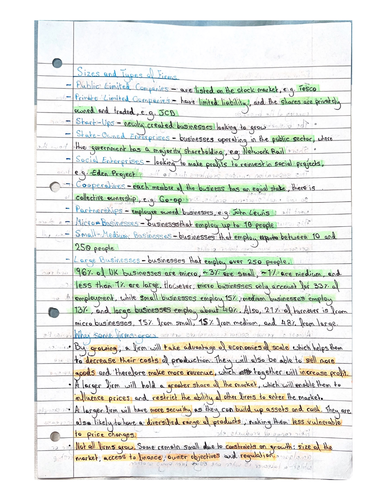 Sizes and Types of Firms
- Public Limited Companies - are listed on the stock market, e.g. Tesco
- Private Limited Companies - have limited liability, and the shares are privately
owned and traded, e.g. JCB
- Start-Ups - newly created businesses looking to grow
- State-Owned Enterprises - businesses operating in the public sector, where
the government has a majority shareholding, e.g. Network Rail
- Social Enterprises - looking to make profits to reinvest in social projects,
e.g. Eden Project
- Cooperatives - each member of the business has an equal stake, there is
collective ownership, e.g. Co-op
- Partnerships - employee owned businesses, e.g. John Lewis
- Micro-Businesses - businesses that employ up to 10 people
- Small-Medium Businesses - businesses that employ between 10 and
250 people
- Large Businesses - businesses that employ over 250 people.
96% of UK businesses are micro, ~3% are small, ~1% are medium, and
less than 1% are large. However, micro businesses only account for 33% of
employment, while small businesses employ 15%, medium businesses employ
13%, and large businesses employ about 40%. Also, 21% of turnover is from
micro businesses, 15% from small, 15% from medium, and 48% from large.
Why some firms grow
• By growing, a firm will take advantage of economies of scale which helps them
to decrease their costs of production. They will also be able to sell more
goods and therefore make more revenue, which together will increase profit.
• A larger firm will hold a greater share of the market, which will enable them to
influence prices and restrict the ability of other firms to enter the market.
• A larger firm will have more security as they can build up assets and cash. They are
also likely to have a diversified range of products, making them less vulnerable
to price changes.
• Not all firms grow. Some remain small due to constraints on growth: size of the
market, access to finance, owner objectives and regulation.